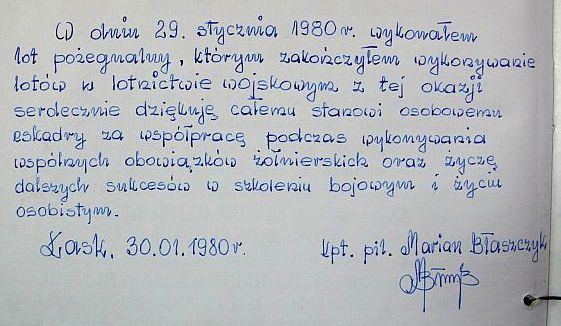 W dniu 29. stycznia 1980 r. wykonałem
lot pożegnalny, którym zakończyłem wykonywanie
lotów w lotnictwie wojskowym z tej okazji
serdecznie dziękuję całemu stanowi osobowemu
eskadry za współpracę podczas wykonywania
wspólnych obowiązków żołnierskich oraz życzę
dalszych sukcesów w szkoleniu bojowym i życiu
osobistym.
Łask, 30.01.1980 r. kpt. pil. Marian Błaszczyk